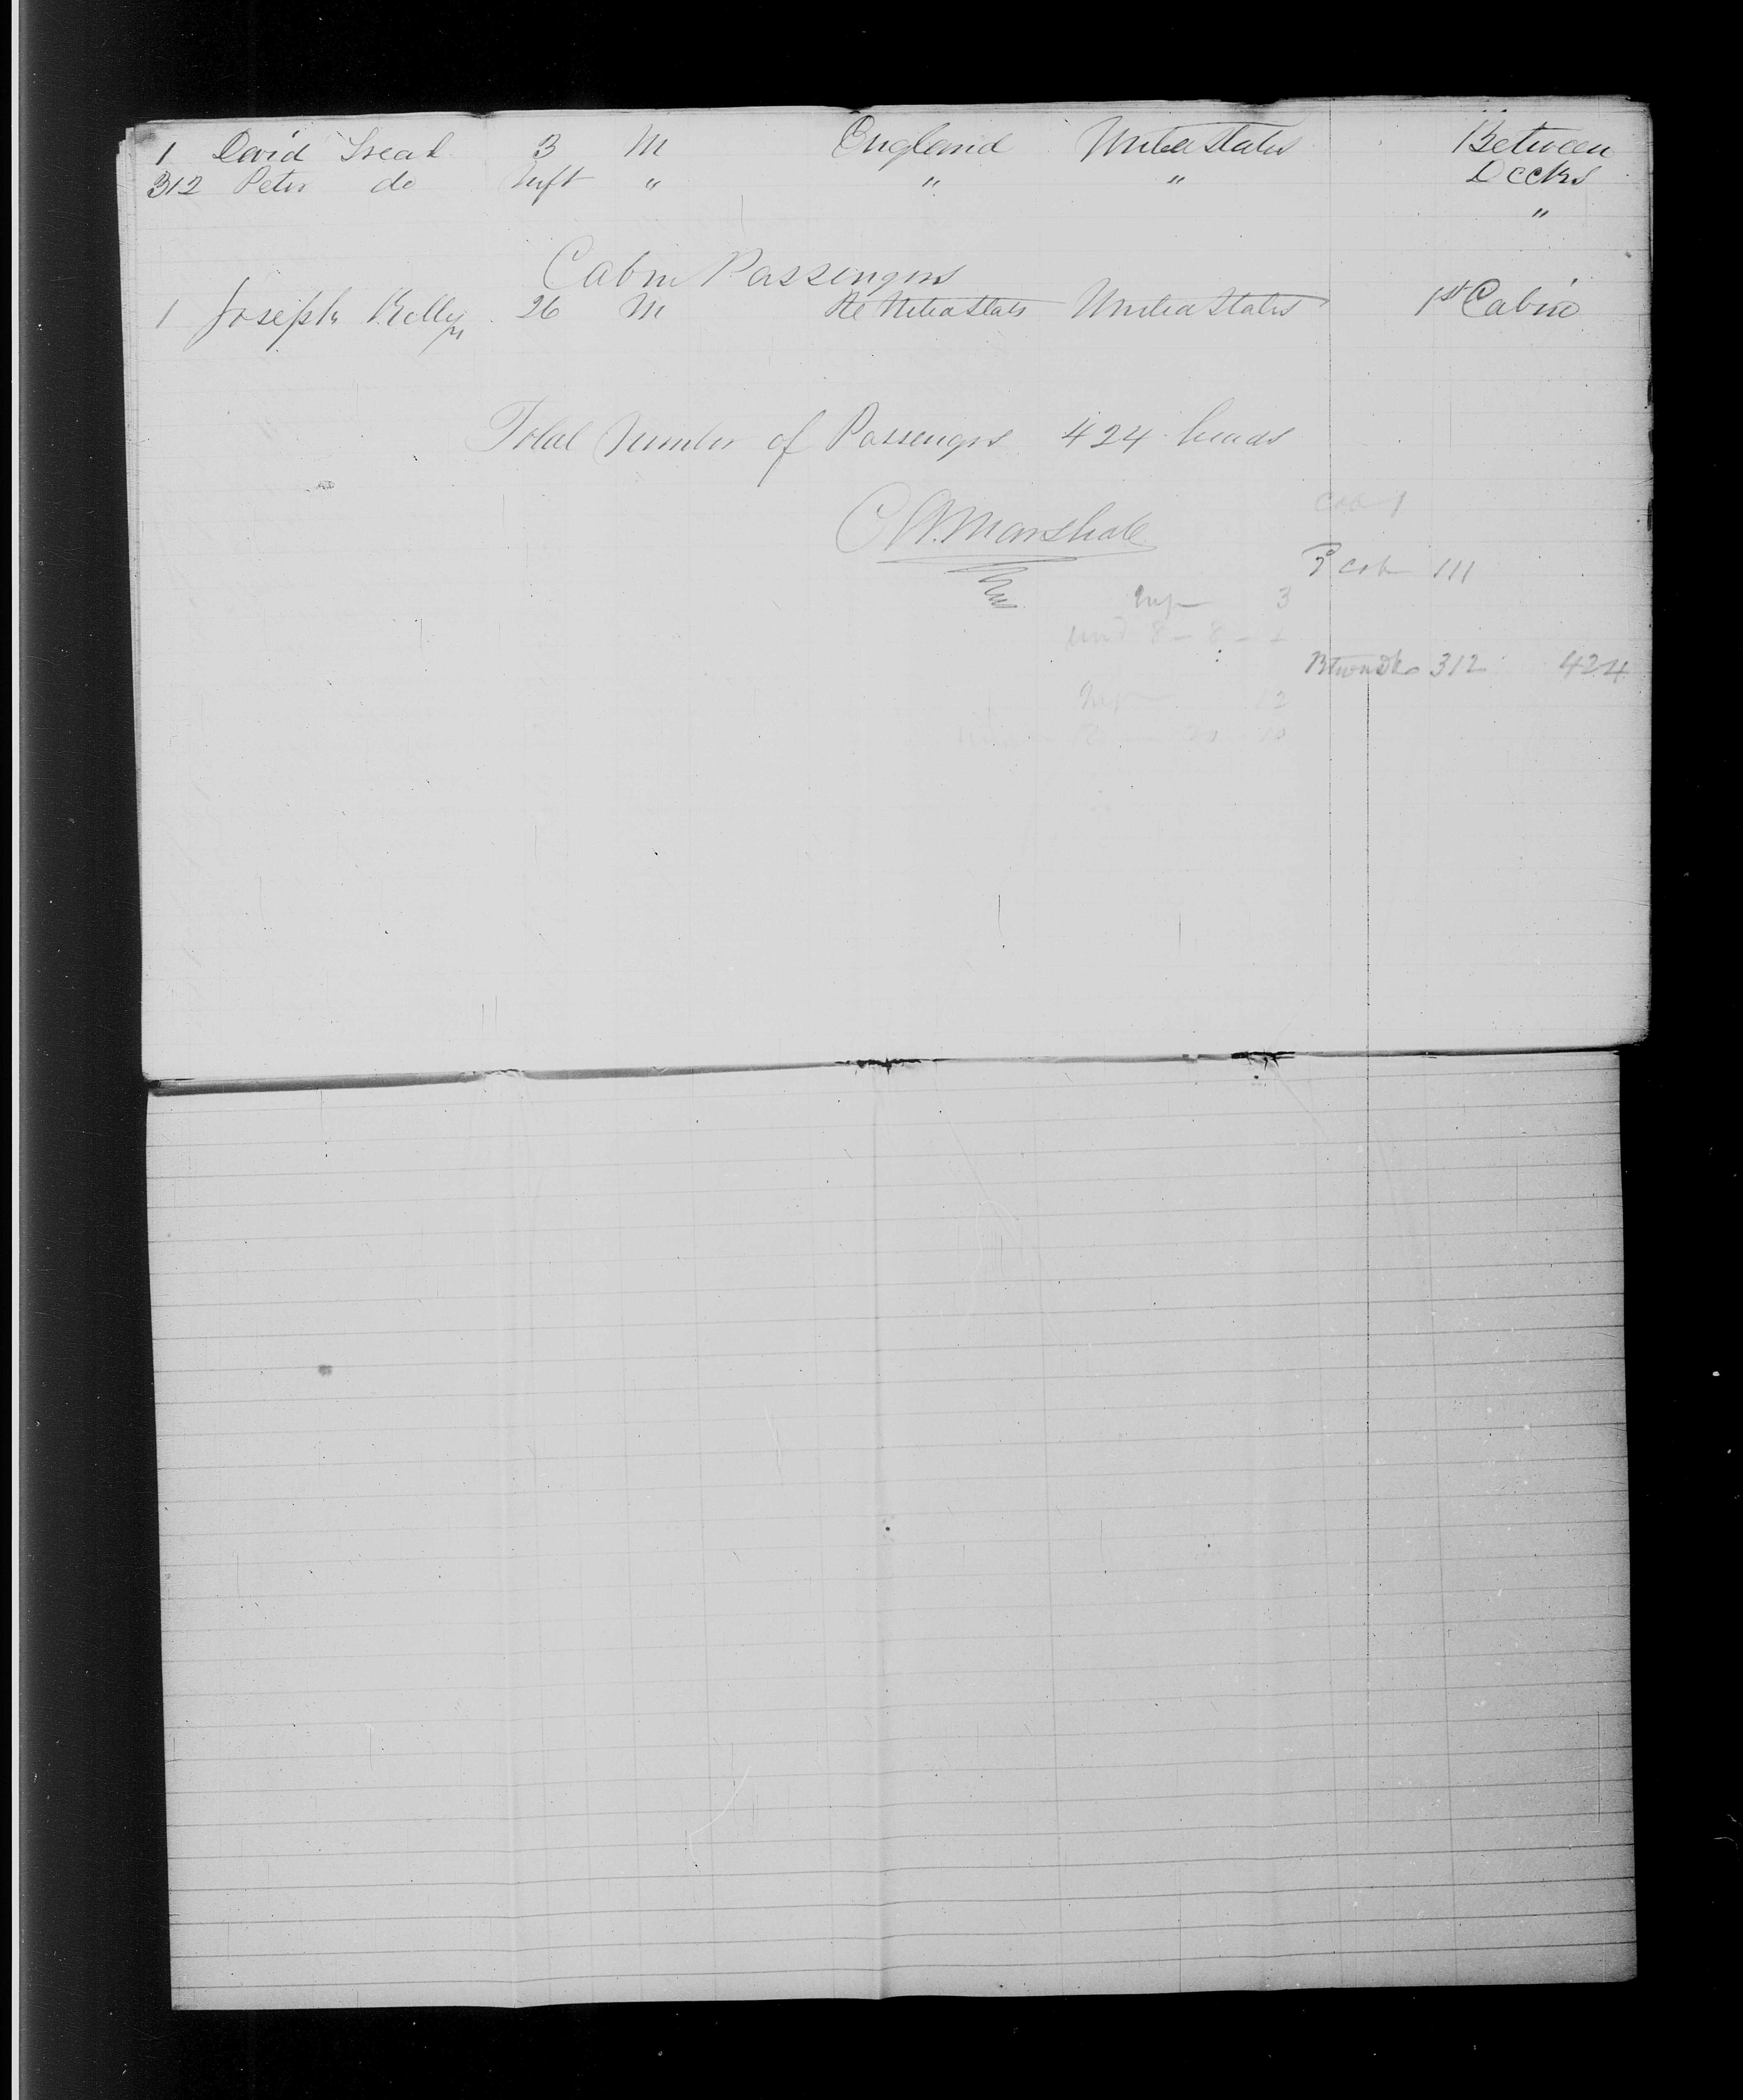 1 David Treat 3 M England United States Between
312 Peter do Inft " " " Decks
"
Cabin Passengers
1 Joseph Kelly 26 M United States 1st Cabin
Total Number of Passengers 424 heads
C W Marshall
Cab 1
2 cab 111
Inf 3
und 8 - 8 -
Btwn dks 312 424
Inf 12